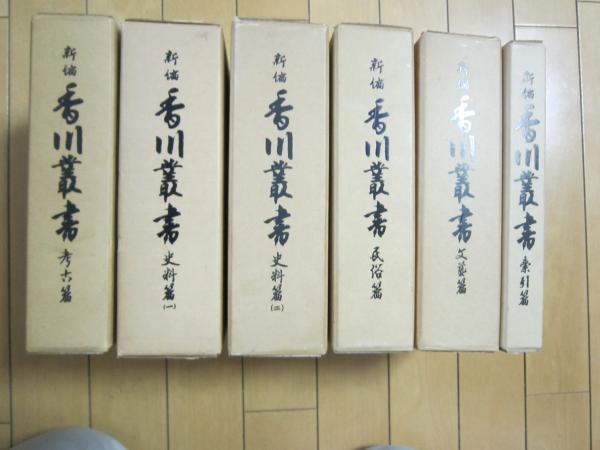 新編
香川叢書
考古篇
新編
香川叢書
史料篇
(一)
新編
香川叢書
史料篇
(二)
新編
香川叢書
民俗篇
新編
香川叢書
文藝篇
新編
香川叢書
索引篇